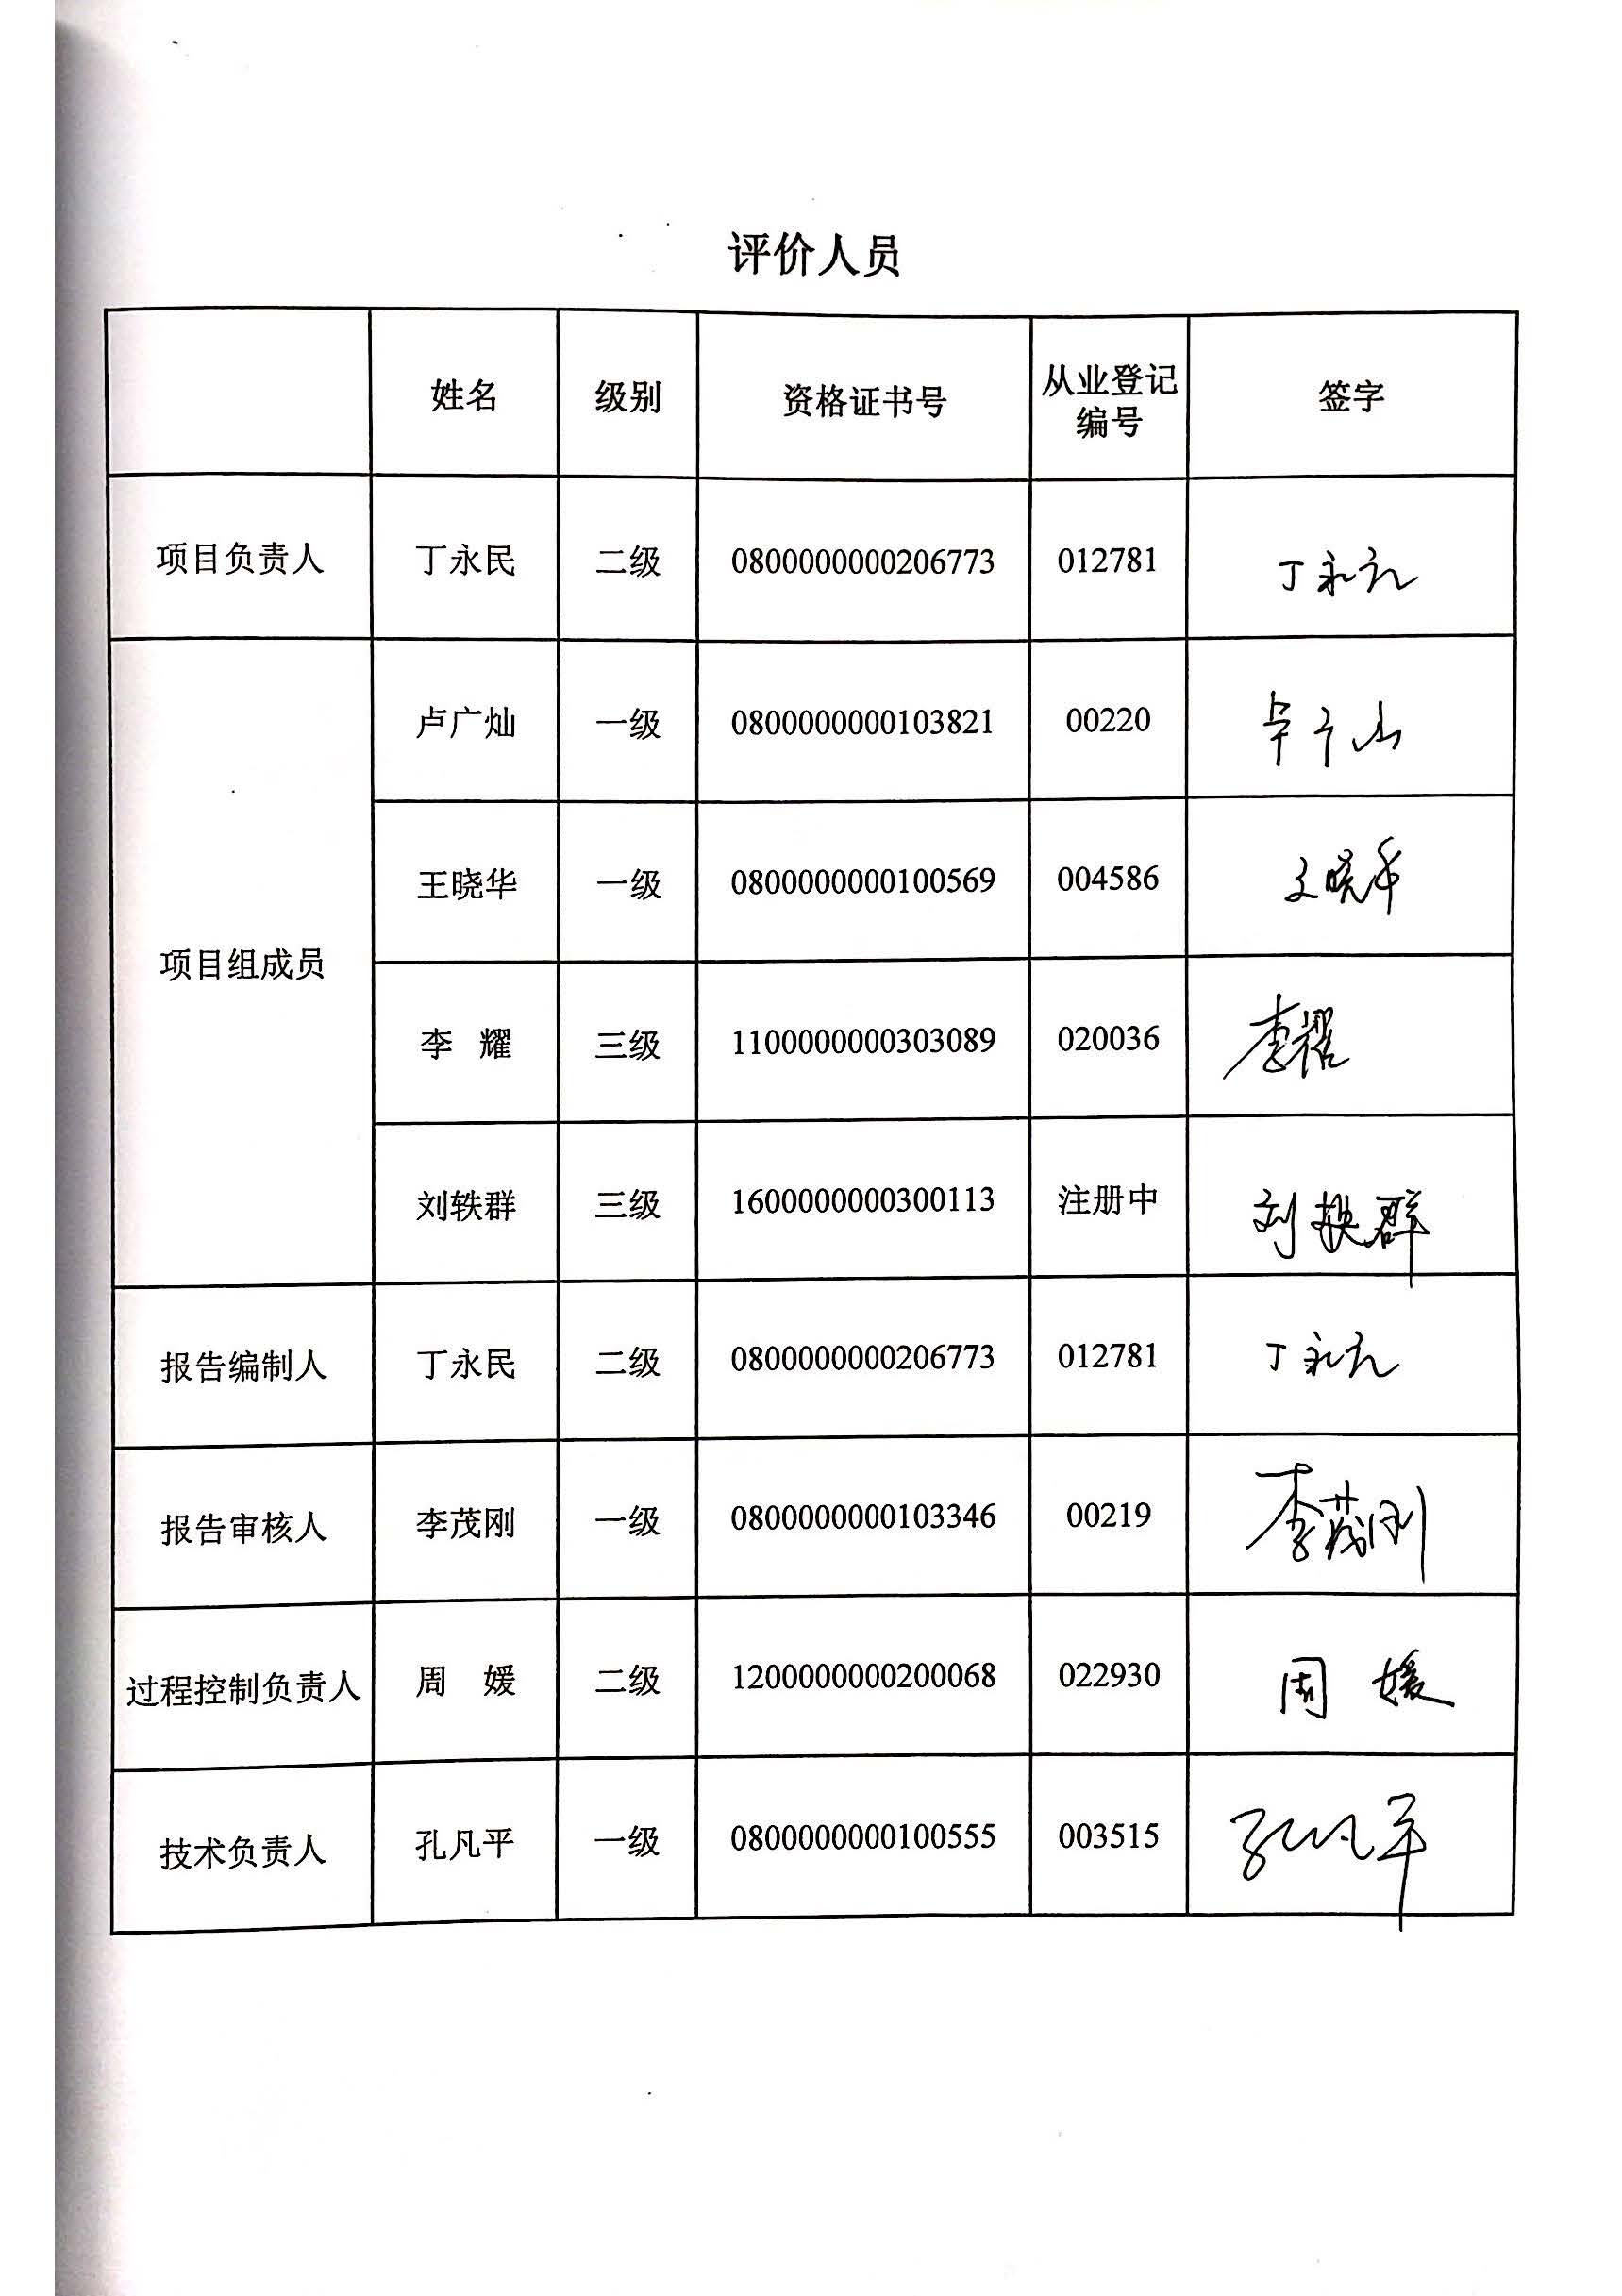 评价人员
姓名 级别 资格证书号 从业登记编号 签字
项目负责人 丁永民 二级 0800000000206773 012781 丁永民
项目组成员
卢广灿 一级 0800000000103821 00220
王晓华 一级 0800000000100569 004586 王晓华
李 耀 三级 1100000000303089 020036 李耀
刘轶群 三级 1600000000300113 注册中 刘轶群
报告编制人 丁永民 二级 0800000000206773 012781 丁永民
报告审核人 李茂刚 一级 0800000000103346 00219 李茂刚
过程控制负责人 周 媛 二级 1200000000200068 022930 周 媛
技术负责人 孔凡平 一级 0800000000100555 003515 孔凡平